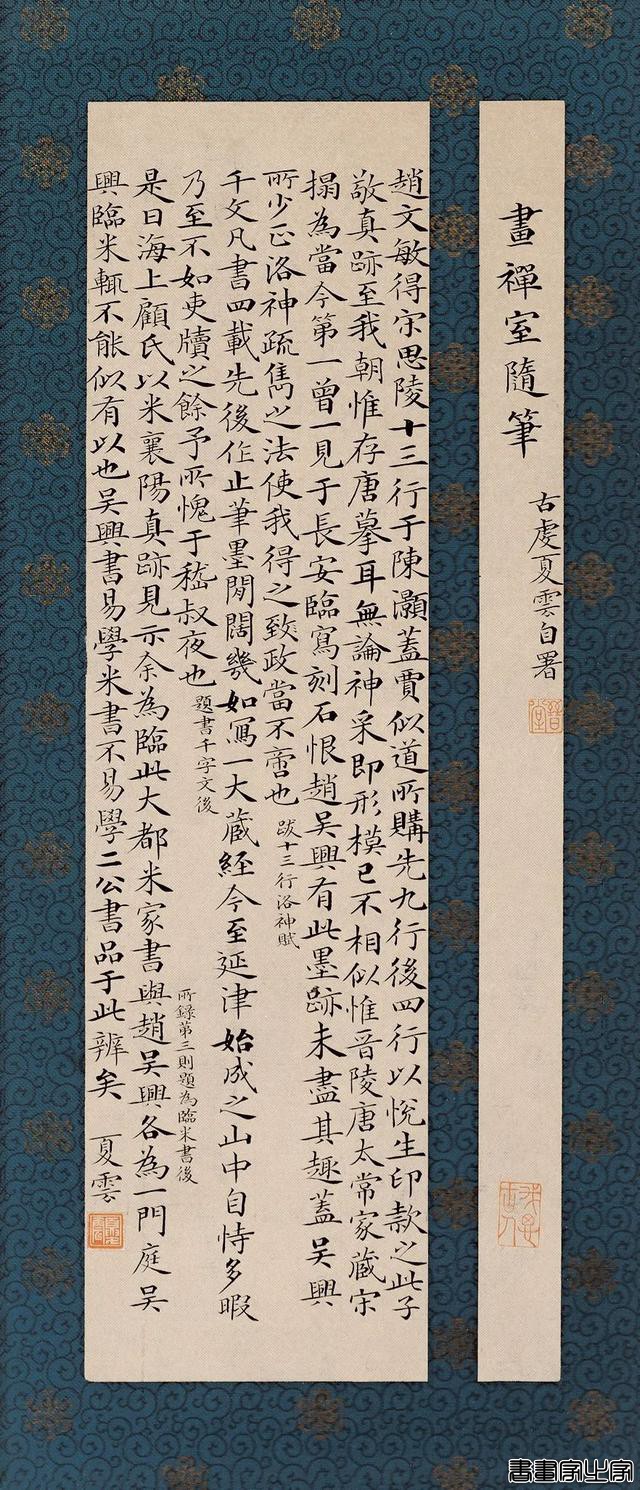 畫禪室隨筆
古虔夏雲自署
趙文敏得宋思陵十三行于陳灝蓋賈似道所購先九行後四行以悅生印款之此子
敬真跡至我朝惟存唐摹耳無論神采即形模已不相似惟晉陵唐太常家藏宋
搨為當今第一曾一見于長安臨寫刻石恨趙吳興有此墨跡未盡其趣蓋吳興
所少正洛神疏雋之法使我得之致政當不啻也 跋十三行洛神賦
千文凡書四載先後作止筆墨閒闊幾如寫一大藏經今至延津始成之山中自恃多暇
乃至不如吏牘之餘予所愧于嵇叔夜也 題書千字文後
所錄第三則題為臨米書後
是日海上顧氏以米襄陽真跡見示余為臨此大都米家書與趙吳興各為一門庭吳
興臨米輒不能似有以也吳興書易學米書不易學二公書品于此辨矣 夏雲
書畫家之家